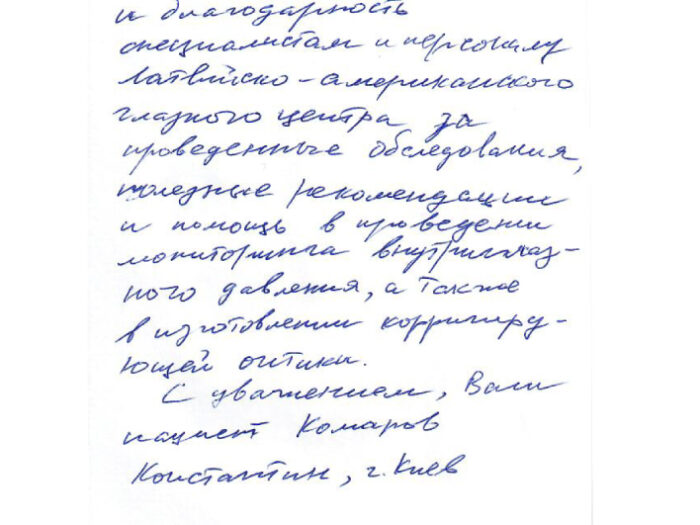 и благодарность
специалистам и персоналу
Латвийско-американского
глазного центра за
проведенные обследования,
полезные рекомендации
и помощь в проведении
мониторинга внутриглаз-
ного давления, а также
в изготовлении корригиру-
ющей оптики.
С уважением, Ваш
пациент Комаров
Константин, г. Киев